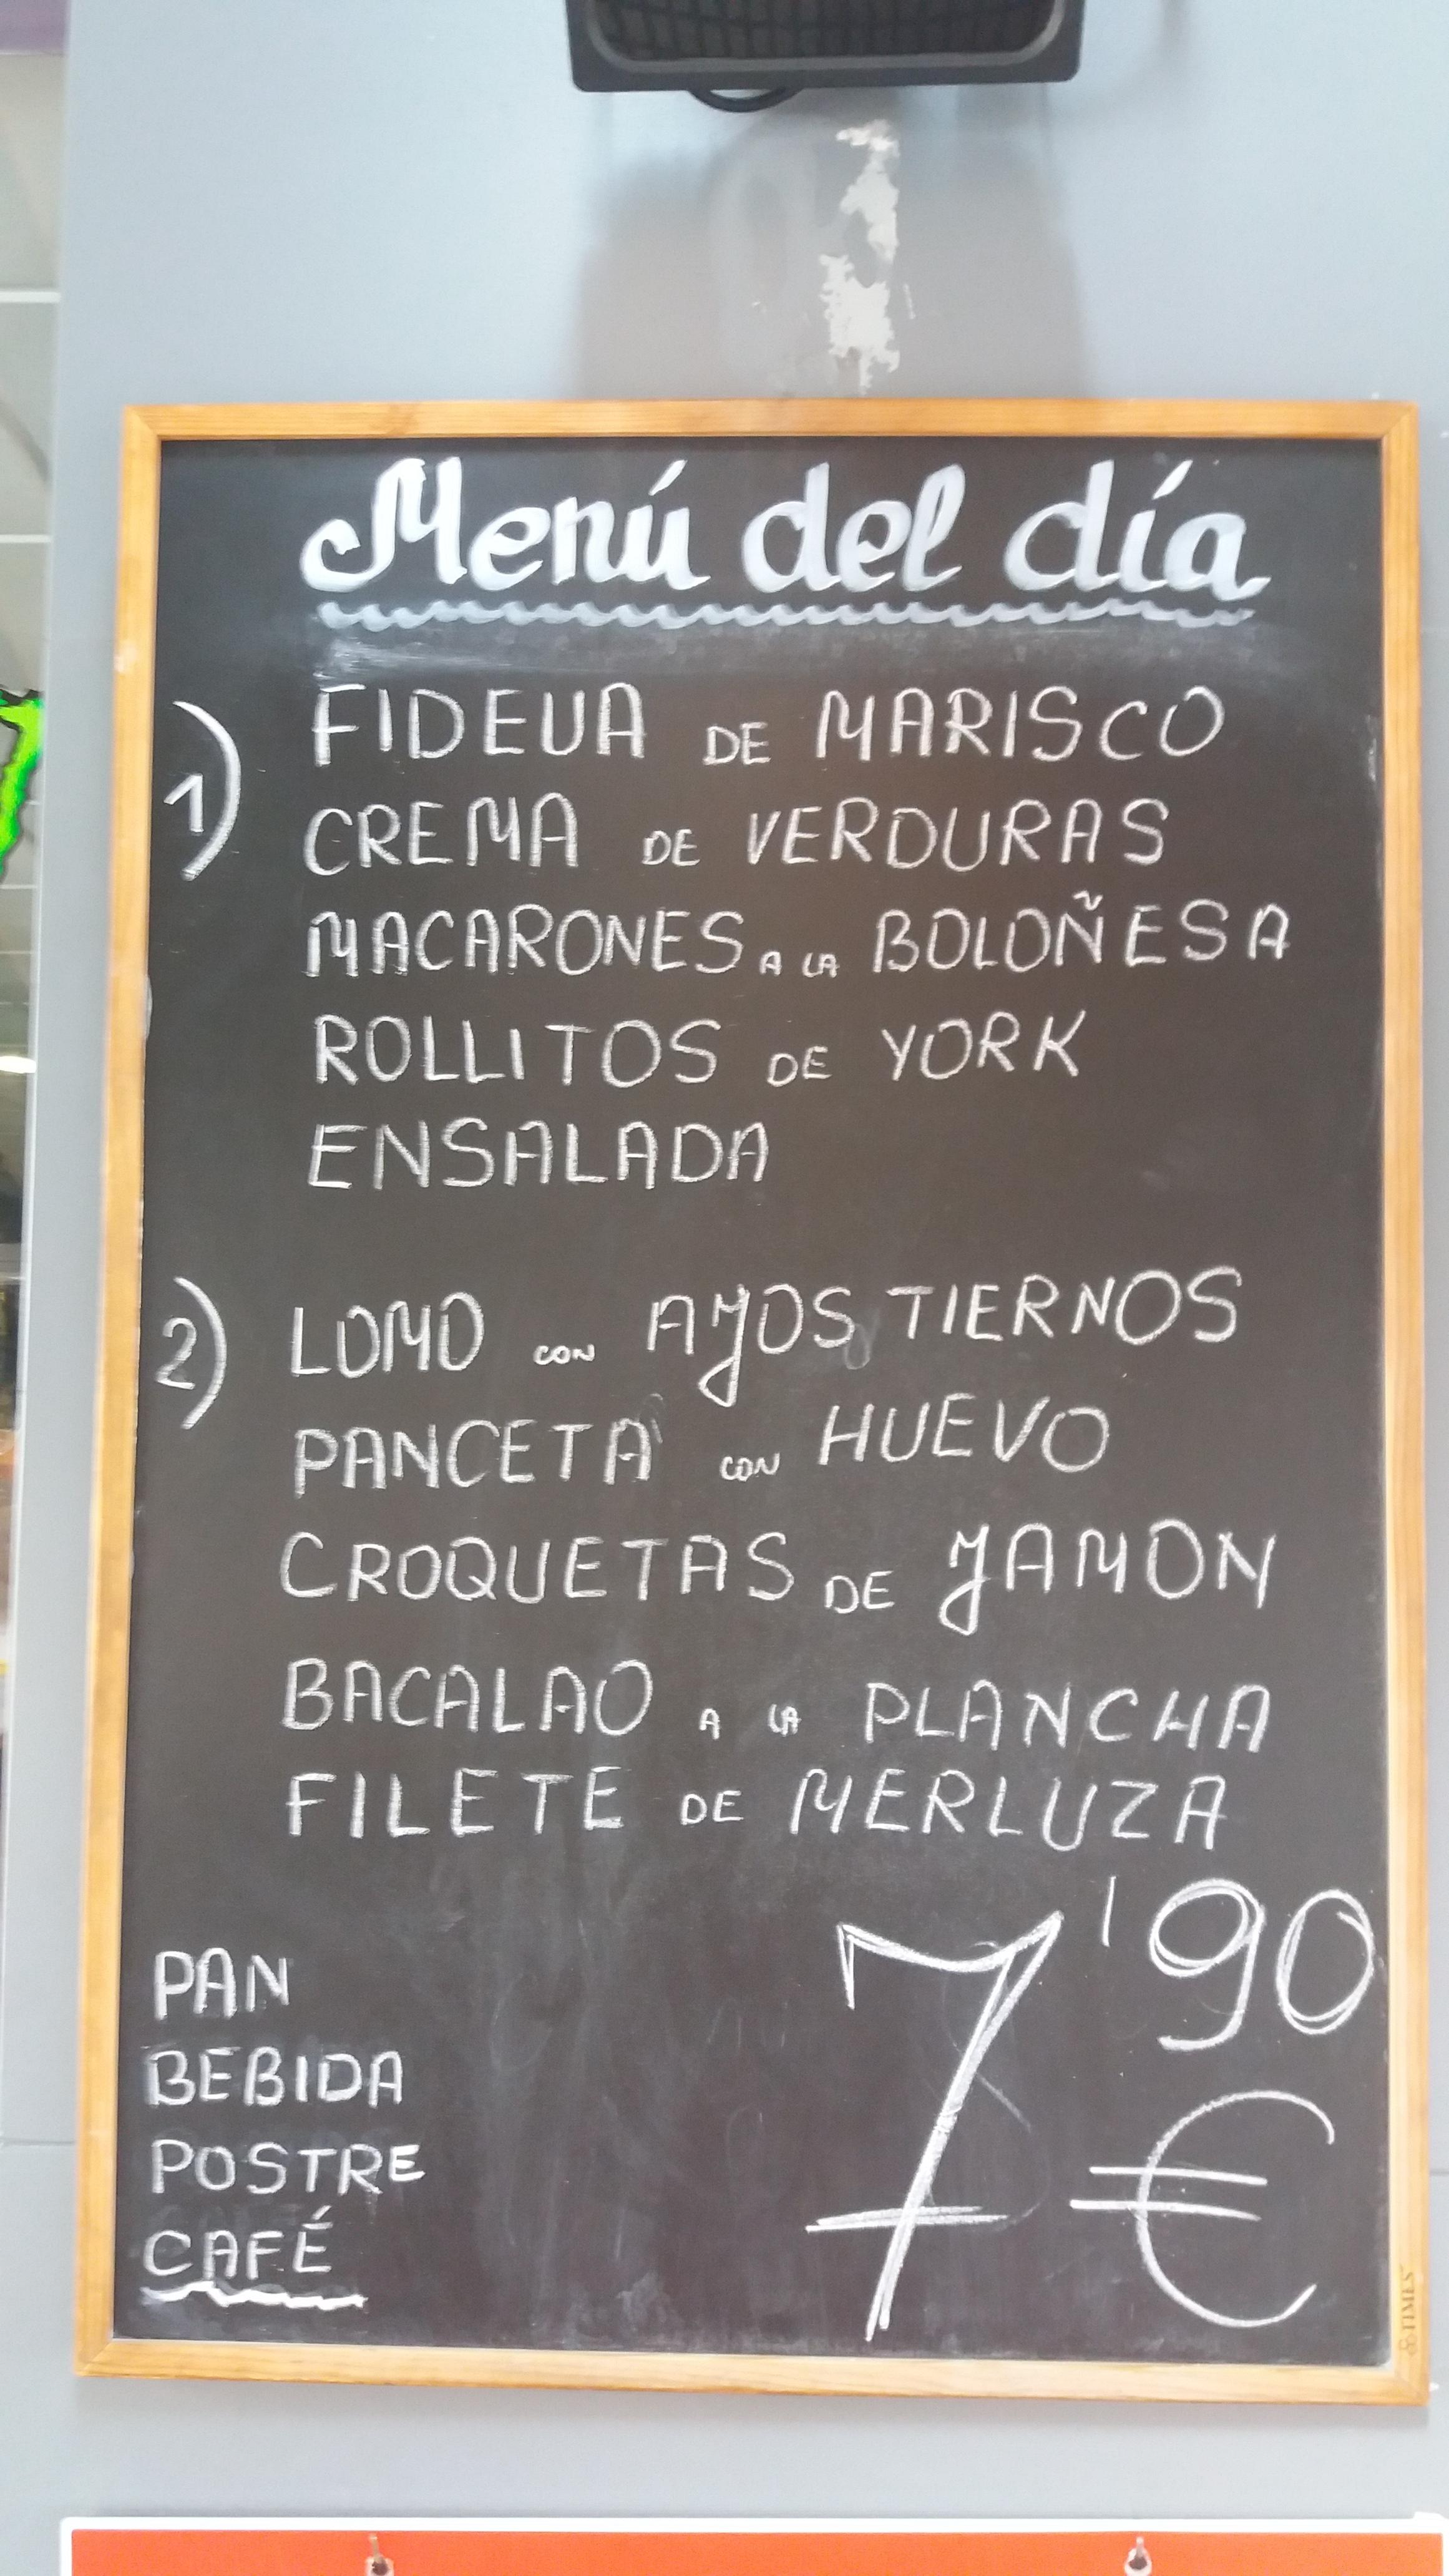 Menú del día
1) FIDEUA DE MARISCO
CREMA DE VERDURAS
MACARONES A LA BOLOÑESA
ROLLITOS DE YORK
ENSALADA
2) LOMO CON AJOS TIERNOS
PANCETA CON HUEVO
CROQUETAS DE JAMON
BACALAO A LA PLANCHA
FILETE DE MERLUZA
PAN
BEBIDA
POSTRE
CAFÉ
7'90 €
TIMES